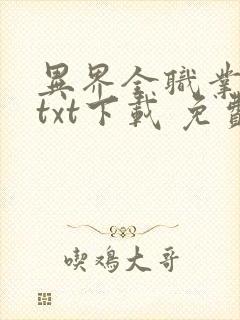 異界全職業
txt下載 免費
喫鳮大哥